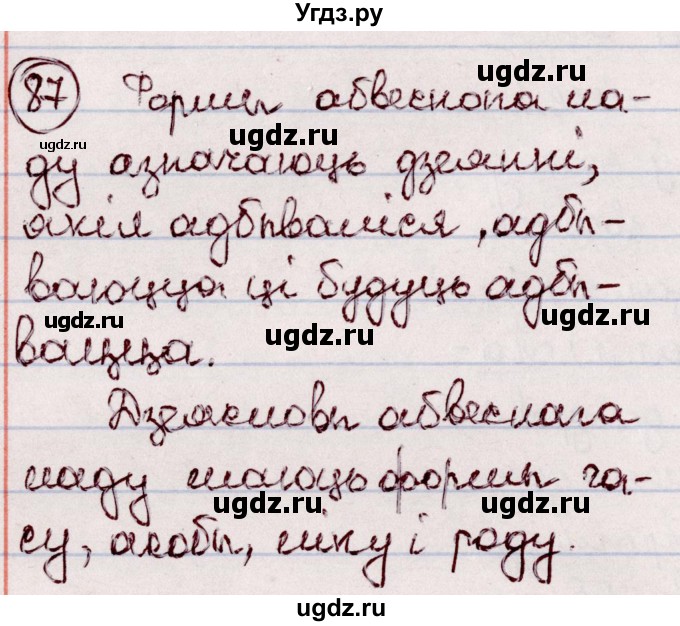 Угдз.ру
87 Формы абвеснага ла-
ду азначаюць дзеянні,
якія адбываліся, адбы-
ваюцца ці будуць адбы-
вацца.
Дзеясловы абвеснага
ладу маюць формы ча-
су, асобы, ліку і роду.
ugdz.ru
ugdz.ru
ugdz.ru
ugdz.ru
ugdz.ru
ugdz.ru
ugdz.ru
ugdz.ru
ugdz.ru
ugdz.ru
ugdz.ru
ugdz.ru
ugdz.ru